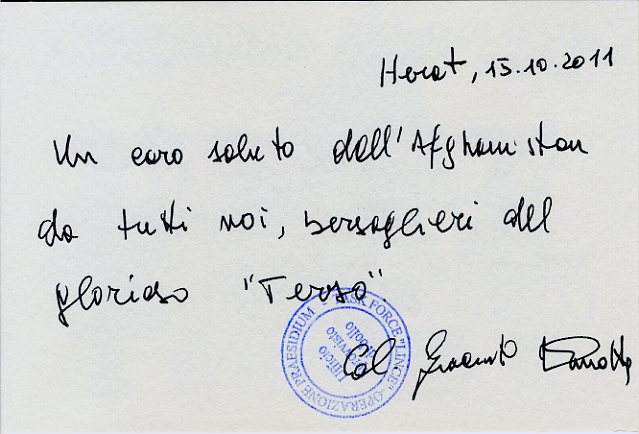 Herat, 15.10.2011
Un caro saluto dall'Afghanistan
da tutti noi, bersaglieri del
glorioso "Terzo".
Col
TASK FORCE "LINCE" - OPERAZIONE PRAESIDIUM
Ufficio
di bollo